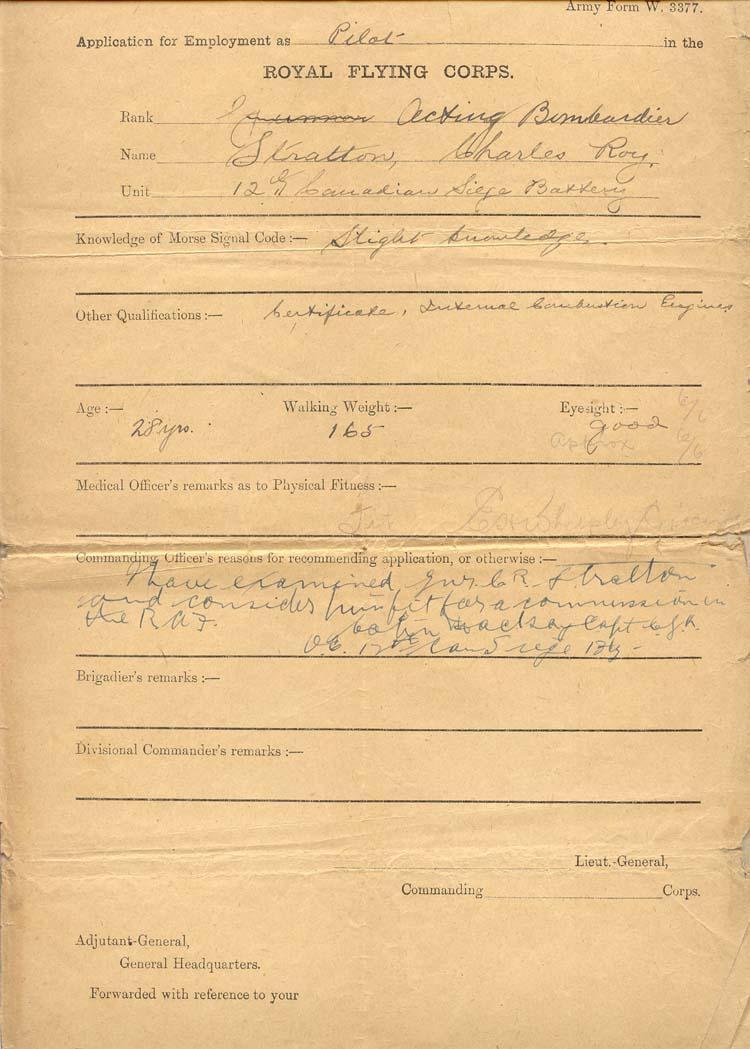 Army Form W. 3377.
Application for Employment as Pilot in the
ROYAL FLYING CORPS.
Rank Gunner Acting Bombardier
Name Stratton, Charles Roy.
Unit 12th Canadian Siege Battery
Knowledge of Morse Signal Code:— Slight knowledge.
Other Qualifications:— Certificate, Internal Combustion Engines
Age:— Walking Weight:— Eyesight:— 6/6
28 yrs. 165 good
approx 6/6
Medical Officer's remarks as to Physical Fitness:—
Fit
Commanding Officer's reasons for recommending application, or otherwise:—
I have examined Gnr. C.R. Stratton
and consider him fit for a commission in
the R A F.
Capt C.G.A.
O.C. 12th Can Siege Bty -
Brigadier's remarks:—
Divisional Commander's remarks:—
Lieut.-General,
Commanding Corps.
Adjutant-General,
General Headquarters.
Forwarded with reference to your